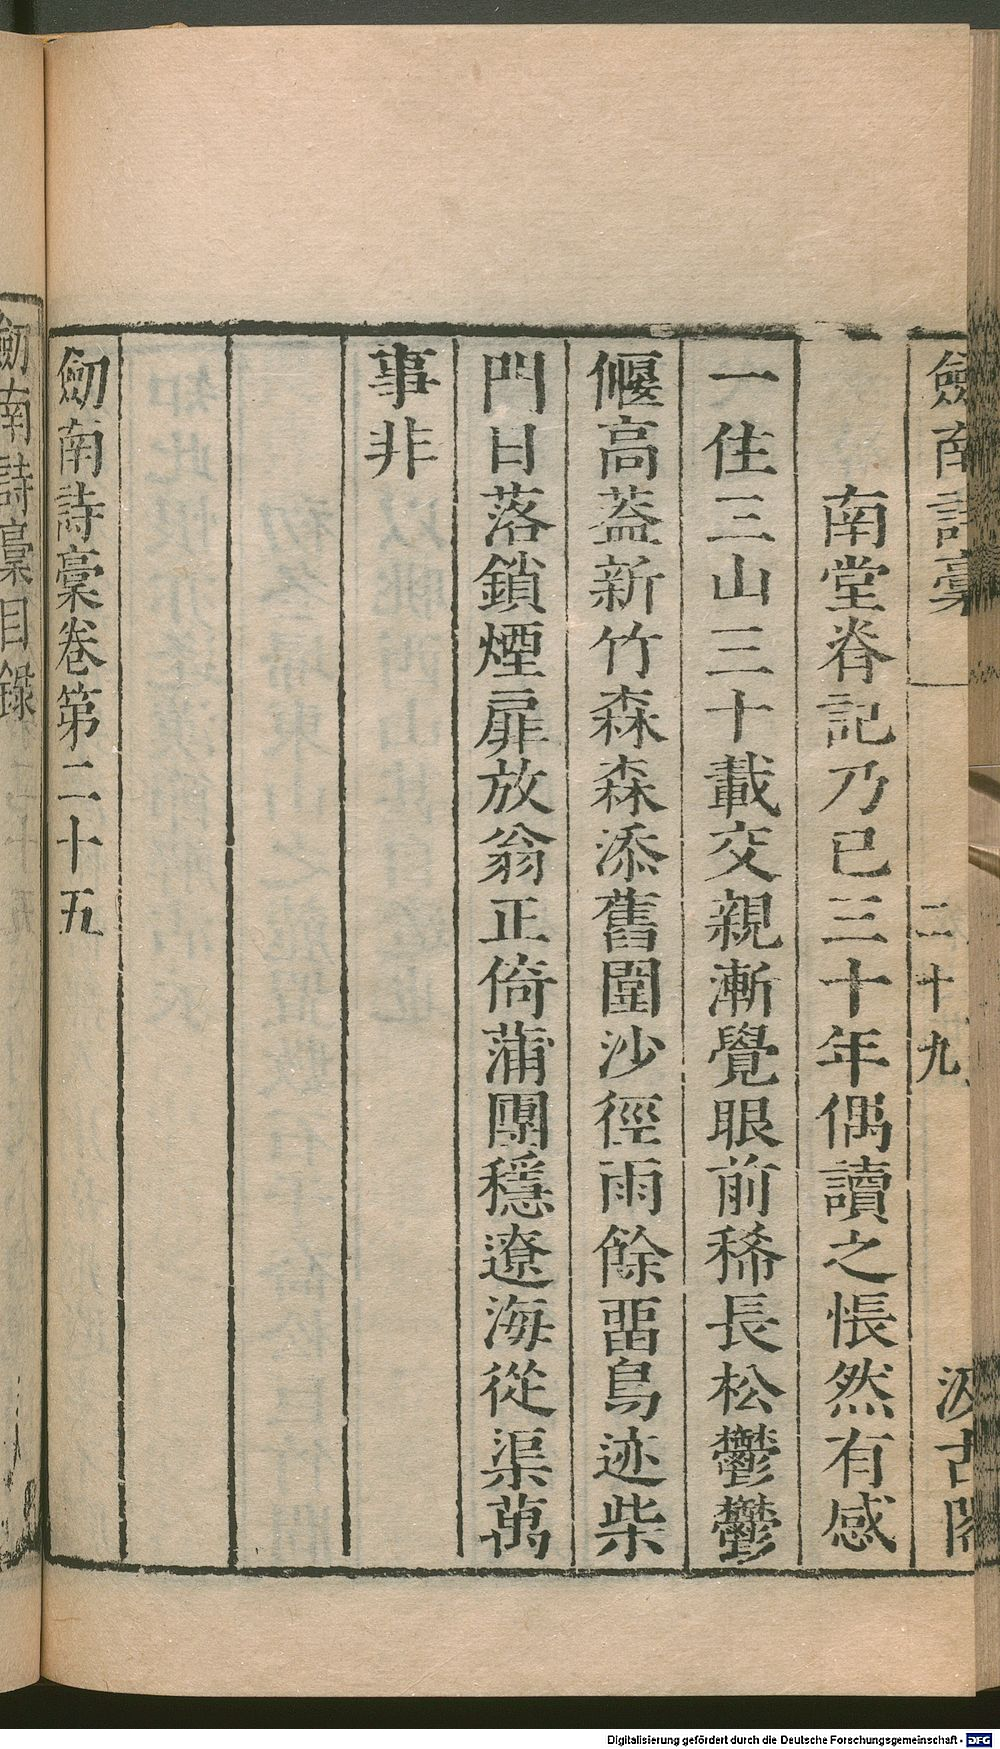 劒南詩稾
二十九
汲古閣
南堂脊記乃已三十年偶讀之悵然有感
一住三山三十載交親漸覺眼前稀長松鬱鬱
偃高葢新竹森森添舊圍沙徑雨餘畱鳥迹柴
門日落鎖煙扉放翁正倚蒲團穩遼海從渠萬
事非
劒南詩稾卷第二十五
劒南詩稾目錄
Digitalisierung gefördert durch die Deutsche Forschungsgemeinschaft - DFG